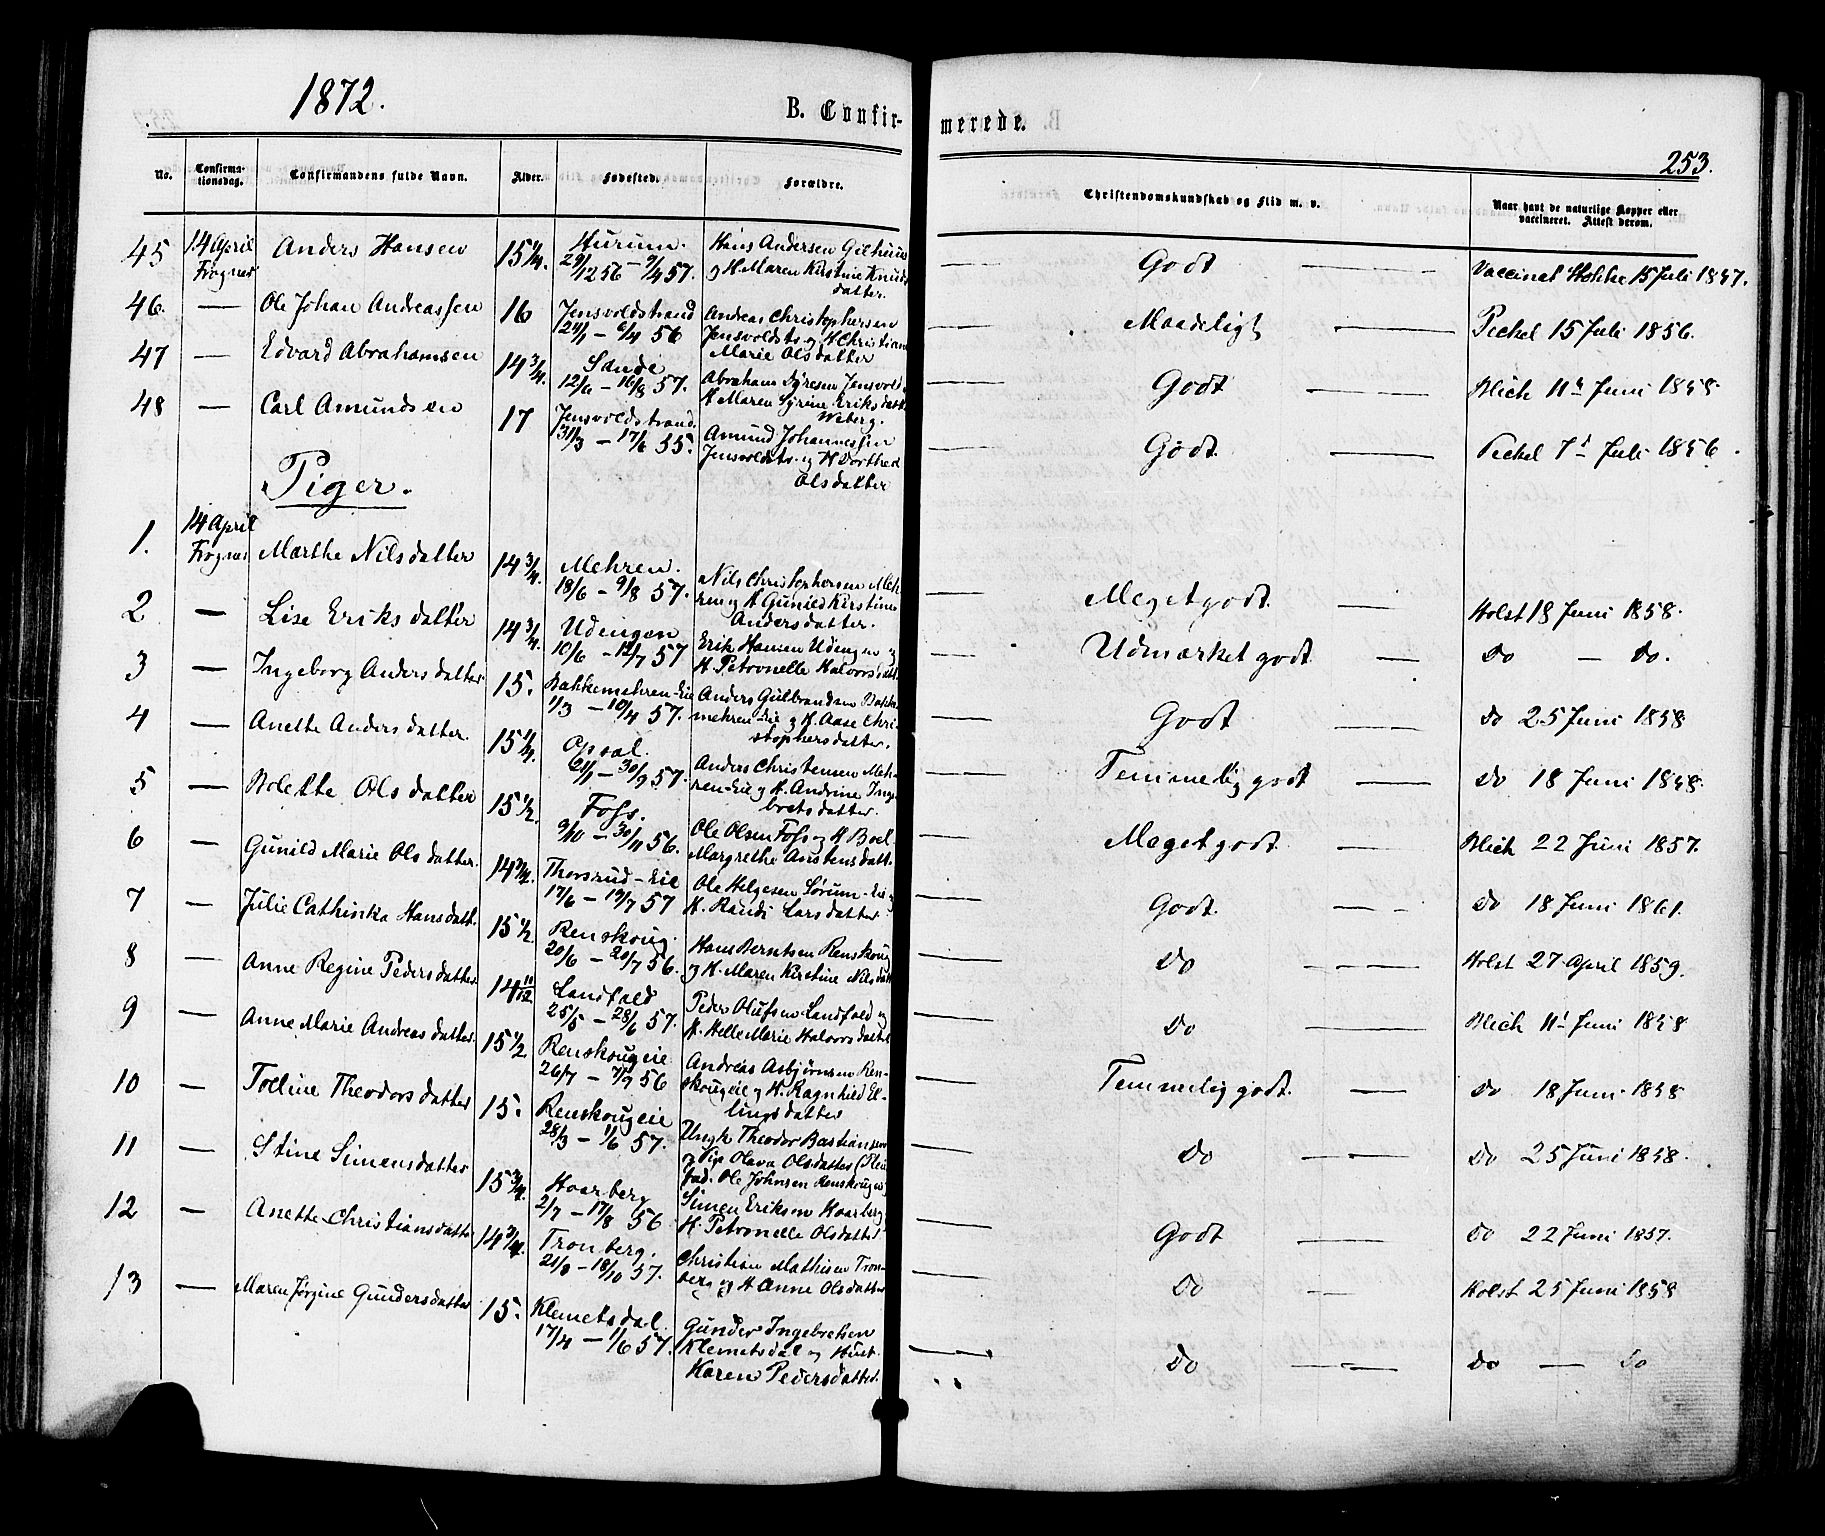 1872.
B. Confir-
merede.
253.
No.
Confirma-
tionsdag.
Confirmandens fulde Navn.
Alder.
Fødested.
Forældre.
Christendomskundskab og Flid m. v.
Naar havt de naturlige Kopper eller
vaccineret. Attest derom.
45 14 April Anders Hansen 15 1/4. Hurum. Hans Andersen
Frogner 29/12 56 – 9/4 57. og H. Maren Kirstine Knuds
datter.
Godt — Vaccinat Holst 15 Juli 1857.
46. — Ole Johan Andreassen 16 Jensvoldstrand Andreas Christophersen
24/1 – 6/4 56 Jensvoldstr. og H. Christiane
Marie Olsdatter
Maadeligt — Pechel 15 Juli 1856.
47 — Edvard Abrahamsen 14 3/4. Sande Abraham Syresen Jensvold
12/6 – 16/8 57. H. Maren Syrine Eriksdatter
Weberg.
Godt — Blich 11te Juni 1858.
48 — Carl Amundsen 17 Jensvoldstrand. Amund Johannessen
31/3 – 17/6 55. Jensvoldstr. og H. Dorthea
Olsdatter
Godt. — Pechel 7de Juli 1856.
Piger.
1. 14 April Marthe Nilsdatter 14 3/4. Mehren. Nils Christophersen Meh-
Frogner 18/6 – 9/8 57. ren og H. Gunild Kirstine
Andersdatter.
— Meget godt. — Holst 18 Juni 1858.
2 — Lise Eriksdatter 14 3/4. Udengen Erik Hansen Udengen og
10/6 – 12/7 57 H. Petronelle Halvorsdatt.
— Udmærket godt — Do — Do.
3 — Ingeborg Andersdatter 15. Bakkemehren-Eie Anders Gulbrandsen Bakke
1/3 – 10/4 57. mehren-Eie og H. Aase Chri-
stophersdatter.
— Godt — Do 25 Juni 1858
4 — Anette Andersdatter. 15 1/4. Opsal. Anders Christensen Meh-
21/1 – 30/9 57. ren-Eie og H. Andrine Inge
bretsdatter.
— Temmelig godt — Do 18 Juni 1858.
5 — Bolette Olsdatter 15 1/2. Foss. Ole Olsen Foss og H. Boel
9/10 – 30/11 56. Margrethe Anstensdatt.
— Meget godt. — Blich 22 Juni 1857.
6 — Gunild Marie Olsdatter. 14 3/4. Thorsrud-Eie Ole Helgesen Sørum-Eie
17/6 – 19/7 57 H. Randi Larsdatter
— Godt. — Do 18 Juni 1861.
7 — Julie Cathinka Hansdatt. 15 1/2. Renskoug. Hans Berntsen Renskoug
20/6 – 20/7 56. og H. Maren Kirstine Nilsdatt
— Do — Holst 27 April 1859.
8 — Anne Regine Pedersdatter 14 11/12 Landfald Peder Olufsen Landfald og
25/5 – 28/6 57. H. Helle Marie Halvorsdatter
— Do — Blich 11te Juni 1858
9 — Anne Marie Andreasdatter. 15 1/2 Renskougeie Andreas Asbjørnsen Ren-
26/7 – 7/9 56 skougeie og H. Ragnhild El-
lingsdatter
— Temmelig godt. — Do 18 Juni 1858
10 — Toline Theodorsdatter 15. Renskougeie Ungk. Theodor Bastiansen
28/3 – 1/6 57. og Pige Olava Olsdatter (Plei
fad. Ole Johnsen Renskougeie)
— Do — Do 25 Juni 1858.
11 — Stine Simensdatter 15 3/4. Haarberg Simen Eriksen Haarberg
2/7 – 17/8 56 H. Petronelle Olsdatter
— Godt — Do 22 Juni 1857.
12 — Anette Christiansdatter 14 3/4. Tronberg. Christian Mathisen Tron-
21/8 – 18/10 57. berg og H. Anne Olsdatter
— Do — Holst 25 Juni 1858
13 — Maren Jørgine Gundersdatter 15. Klemetsdal. Gunder Ingebretsen
17/4 – 1/6 57. Klemetsdal og Hust.
Karen Pedersdatter.
— Do — Do — Do